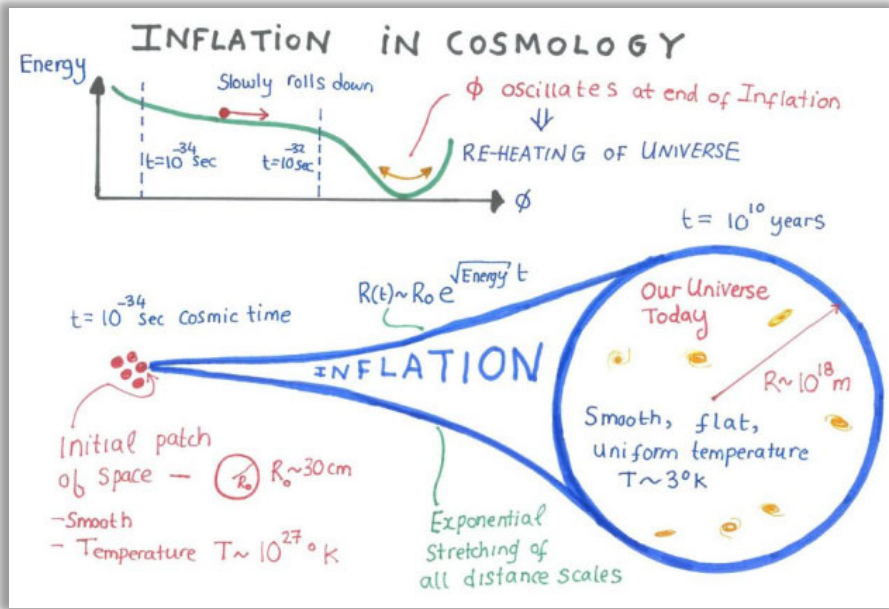 INFLATION IN COSMOLOGY
Energy
Slowly rolls down
ϕ oscillates at end of Inflation
⇓
RE-HEATING OF UNIVERSE
t=10^-34 sec
t=10^-32 sec
ϕ
t = 10^10 years
R(t)~R₀ e^√Energy t
t = 10^-34 sec cosmic time
INFLATION
Our Universe
Today
R~10^18 m
Smooth, flat,
uniform temperature
T~3°K
Initial patch
of space –
R₀
R₀~30cm
-Smooth
- Temperature T~10^27 °K
Exponential
Stretching of
all distance scales